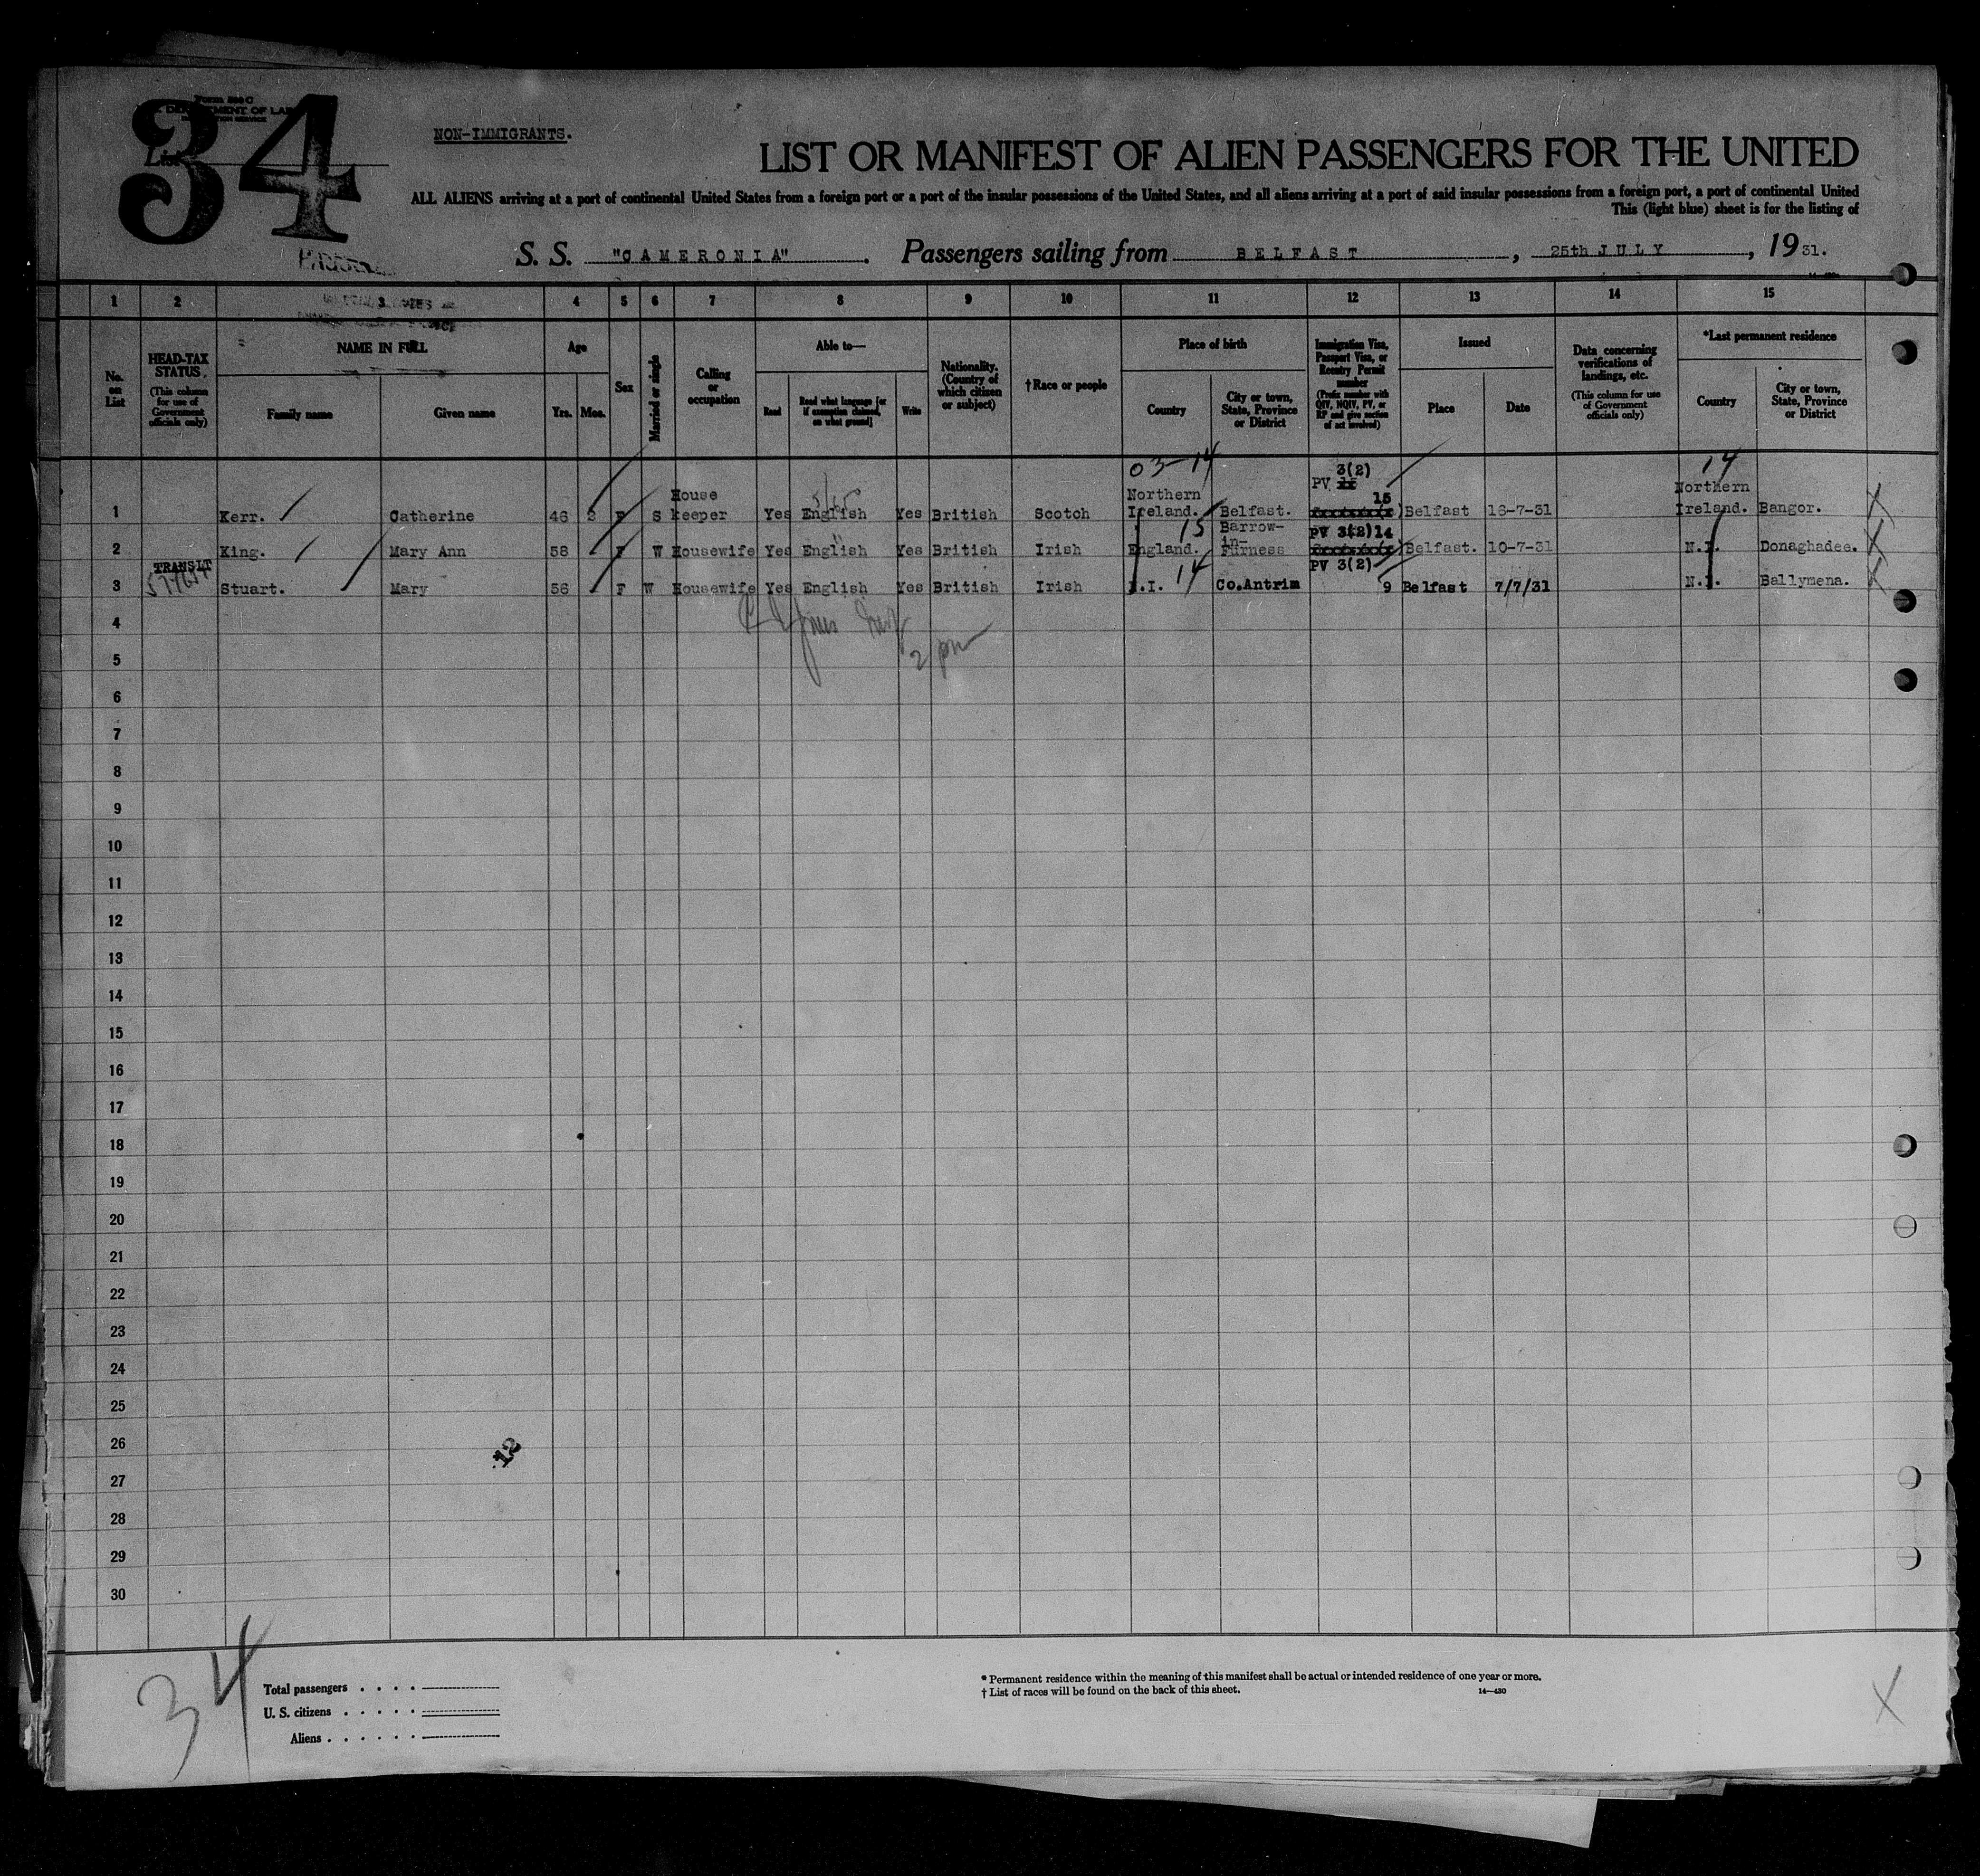 34
Form 500 C
List
NON-IMMIGRANTS.
LIST OR MANIFEST OF ALIEN PASSENGERS FOR THE UNITED
ALL ALIENS arriving at a port of continental United States from a foreign port or a port of the insular possessions of the United States, and all aliens arriving at a port of said insular possessions from a foreign port, a port of continental United
This (light blue) sheet is for the listing of
S. S. "CAMERONIA". Passengers sailing from BELFAST, 25th JULY, 1931.
1 2 3 4 5 6 7 8 9 10 11 12 13 14 15
No. on List
HEAD-TAX STATUS (This column for use of Government officials only)
NAME IN FULL
Family name Given name
Age
Yrs. Mos.
Sex
Married or single
Calling or occupation
Able to—
Read
Read what language [or if exemption claimed, on what ground]
Write
Nationality. (Country of which citizen or subject)
†Race or people
Place of birth
Country
City or town, State, Province or District
Immigration Visa, Passport Visa, or Reentry Permit number (Prefix number with QIV, NQIV, PV, or RP and give section of act involved)
Issued
Place Date
Data concerning verifications of landings, etc. (This column for use of Government officials only)
*Last permanent residence
Country
City or town, State, Province or District
03-14 14
1 Kerr. Catherine 46 F S House keeper Yes English Yes British Scotch Northern Ireland. Belfast. PV 3(2) 15 Belfast 16-7-31 Northern Ireland. Bangor.
15
2 King. Mary Ann 58 F W Housewife Yes English Yes British Irish England. Barrow-in-Furness PV 3(2) 14 Belfast. 10-7-31 N.I. Donaghadee.
TRANSIT
14
3 Stuart. Mary 56 F W Housewife Yes English Yes British Irish N.I. Co.Antrim PV 3(2) 9 Belfast 7/7/31 N.I. Ballymena.
2 pm
4
5
6
7
8
9
10
11
12
13
14
15
16
17
18
19
20
21
22
23
24
25
26
12
27
28
29
30
34
Total passengers
U. S. citizens
Aliens
* Permanent residence within the meaning of this manifest shall be actual or intended residence of one year or more.
† List of races will be found on the back of this sheet.
14—430
X